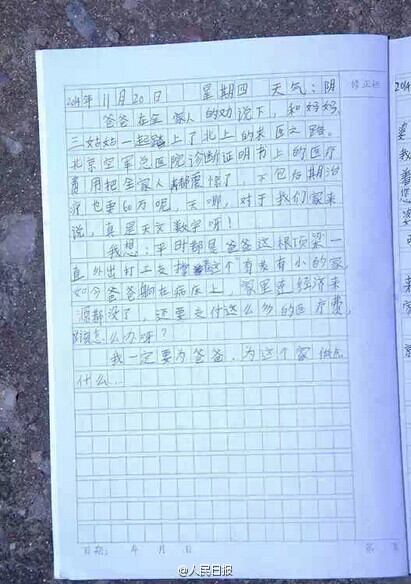 2014年11月20日 星期四 天气:阴
修正栏
2014
爸爸在全家人的劝说下,和妈妈、
三姑妈一起踏上了北上的求医之路。
北京空军总医院诊断证明书上的医疗
费用把全家人都震惊了,不包后期治
疗也要60万呢,天哪,对于我们家来
说,真是天文数字呀!
我想:平时都是爸爸这根顶梁一
直外出打工支撑着这个有老有小的家,
如今爸爸躺在病床上,家里连经济来
源都没了,还要支付这么多的医疗费,
该怎么办呀?
我一定要为爸爸,为这个家做点
什么…
日期: 年 月 日
第 页
@人民日报